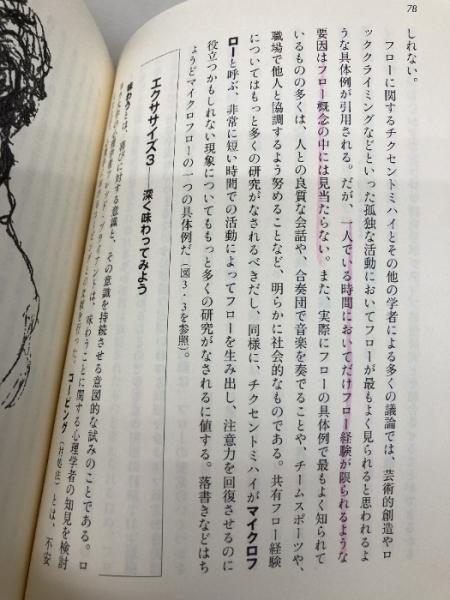 78
しれない。
フローに関するチクセントミハイとその他の学者による多くの議論では、芸術的創造やロ
ッククライミングなどといった孤独な活動においてフローが最もよく見られると思われるよ
うな具体例が引用される。だが、一人でいる時間においてだけフロー経験が限られるような
要因はフロー概念の中には見当たらない。また、実際にフローの具体例で最もよく知られて
いるものの多くは、人との良質な会話や、合奏団で音楽を奏でることや、チームスポーツや、
職場で他人と協調するよう努めることなど、明らかに社会的なものである。共有フロー経験
についてはもっと多くの研究がなされるべきだし、同様に、チクセントミハイがマイクロフ
ローと呼ぶ、非常に短い時間での活動によってフローを生み出し、注意力を回復させるのに
役立つかもしれない現象についてももっと多くの研究がなされるに値する。落書きなどはち
ょうどマイクロフローの一つの具体例だ（図3・3を参照）。
エクササイズ3――深く味わってみよう
味わうとは、喜びに対する意識と、その意識を持続させる意図的な試みのことである。ロ
は、味わうことに関する心理学者の知見を検討
コーピング（対処法）とは、不安